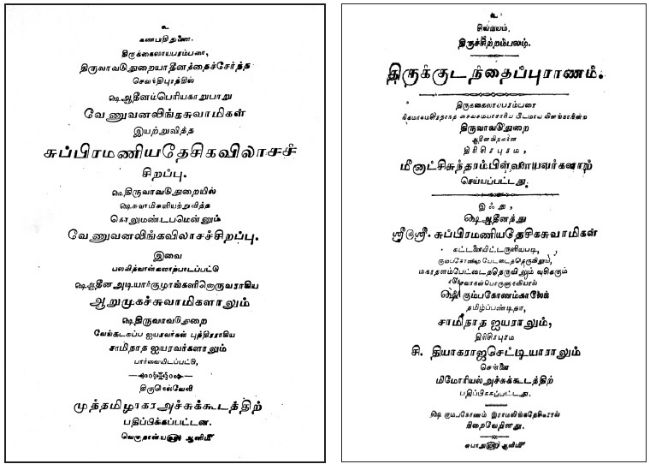 உ
கணபதிதுணை.
திருக்கைலாயபரம்பரை,
திருவாவடுதுறையாதீனத்தைச்சேர்ந்த
செவந்திபுரத்தில்
ஷெ ஆதீனம்பெரியகாறுபாறு
வேணுவனலிங்கசுவாமிகள்
இயற்றுவித்த
சுப்பிரமணியதேசிகவிலாசச்
சிறப்பு.
ஷெ திருவாவடுதுறையில்
ஷெ சுவாமிகளியற்றுவித்த
கொலுமண்டபமென்னும்
வேணுவனலிங்கவிலாசச்சிறப்பு.
இவை
பலவித்வான்களாற்பாடப்பட்டு
ஷெ ஆதீனஅடியார்குழாங்களிலொருவராகிய
ஆறுமுகச்சுவாமிகளாலும்
ஷெ திருவாவடுதுறை
வேங்கடசுப்ப ஐயரவர்கள் புத்திரராகிய
சாமிநாத ஐயரவர்களாலும்
பார்வையிடப்பட்டு,
திருநெல்வேலி
முத்தமிழாகரஅச்சுக்கூடத்திற்
பதிப்பிக்கப்பட்டன.
வெகுதான்ய ௵ ஆனி௴
உ
சிவமயம்.
திருச்சிற்றம்பலம்.
திருக்குடந்தைப்புராணம்.
திருக்கைலாயபரம்பரை
திருவாவடுதுறை
ஆதீனவித்வான்
திரிசிரபுரம்,
மீனாட்சிசுந்தரம்பிள்ளையவர்களாற்
செய்யப்பட்டது.
இஃது,
ஷெ ஆதீனத்து
ஸ்ரீலஸ்ரீ. சுப்பிரமணியதேசிகசுவாமிகள்
கட்டளையிட்டருளியபடி,
கும்பகோணம்பேட்டைத்தெருவிலும்,
மகாதானம்பேட்டைத்தெருவிலும் வசிக்கும்
ஷெ கும்பகோணம்காலேஜ்
தமிழ்ப்பண்டிதர்,
சாமிநாத ஐயராலும்,
திரிசிரபுரம்
சி. தியாகராஜசெட்டியாராலும்
சென்னை
மிமோரியல்அச்சுக்கூடத்திற்
பதிப்பிக்கப்பட்டது.
ஷெ கும்பகோணம் இராமலிங்கதேசிகரால்
நிறைவேறியது.